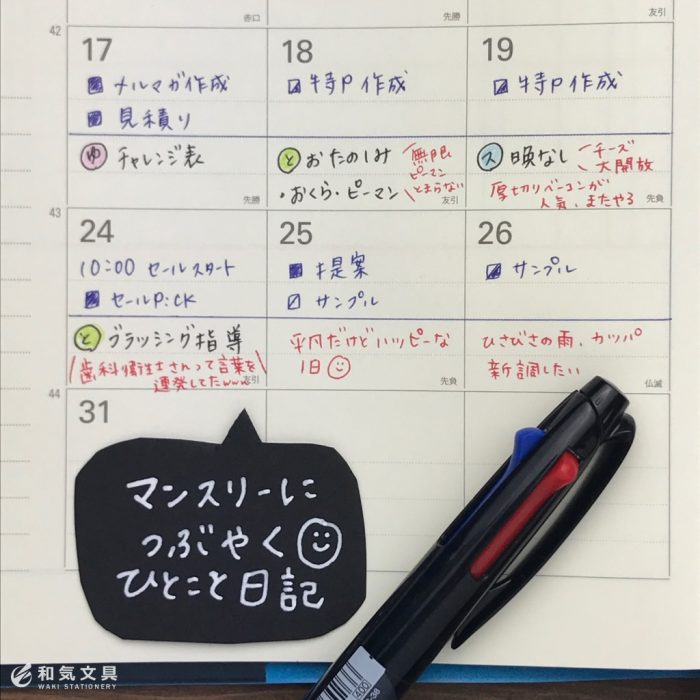 赤口
先勝
友引
42
17
メルマガ作成
見積り
ゆ チャレンジ表
先勝
18
特P作成
と おたのしみ
・おくら・ピーマン
無限
ピーマン
とまらない
友引
19
特P作成
ス 暎なし
チーズ
大開放
厚切りベーコンが
人気、またやろ
先負
43
24
10:00 セールスタート
セールPick
と ブラッシング指導
歯科衛生士さんって言葉を
連発してたwww
友引
25
提案
サンプル
平凡だけどハッピーな
1日
先負
26
サンプル
ひさびさの雨、カッパ
新調したい
仏滅
44
31
マンスリーに
つぶやく
ひとこと日記
400
和気文具
WAKI STATIONERY